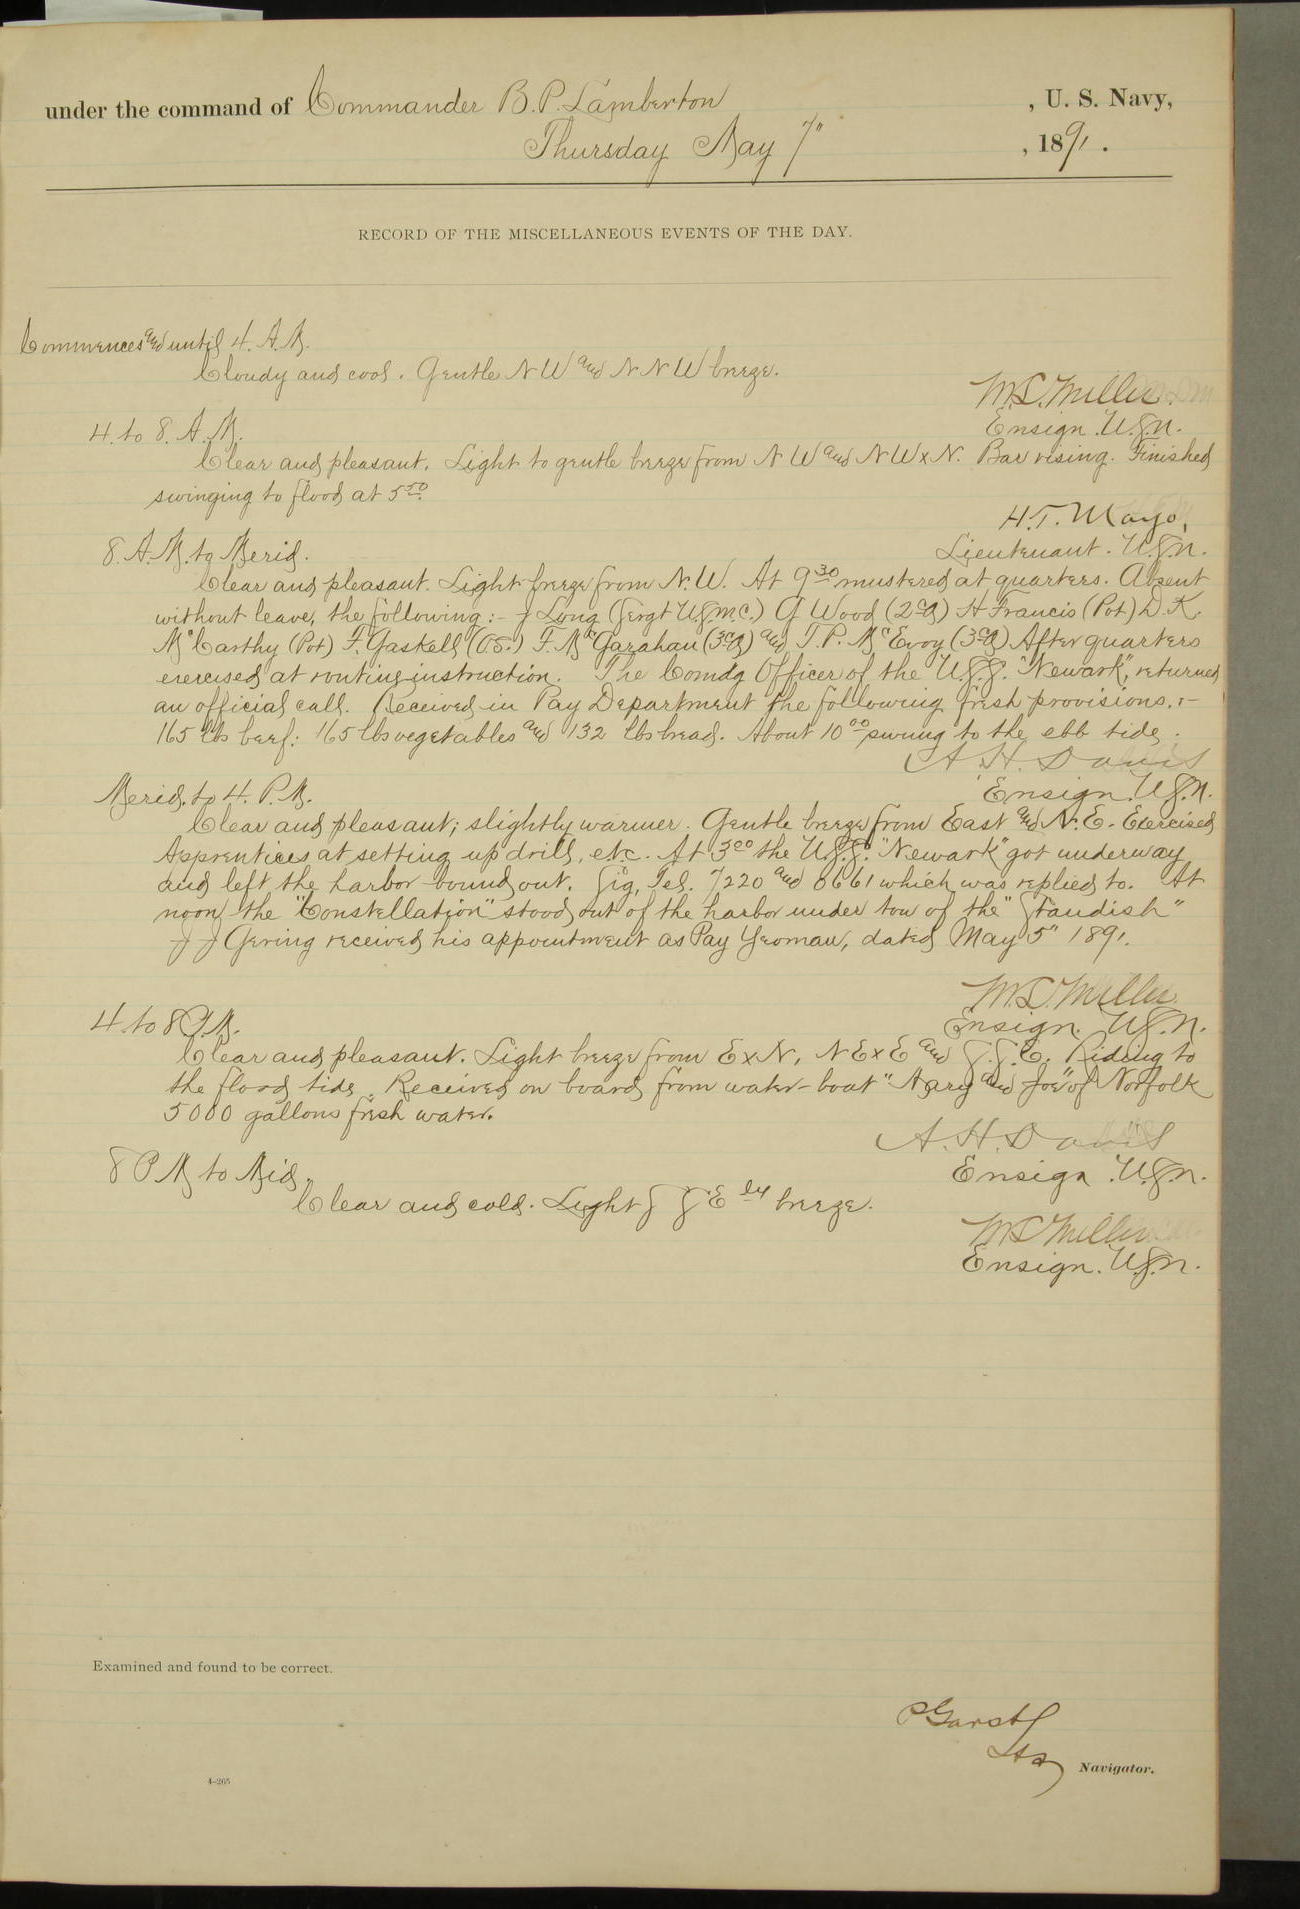 under the command of Commander B. P. Lamberton , U. S. Navy,
Thursday May 7" , 1891.
RECORD OF THE MISCELLANEOUS EVENTS OF THE DAY.
Commences and until 4. A. M.
Cloudy and cool. Gentle NW and NNW breeze.
Ensign. U.S.N.
4. to 8. A. M.
Clear and pleasant. Light to gentle breeze from NW and NWxN. Bar rising. Finished
swinging to flood at 5 50.
H. T. Mayo,
Lieutenant. U.S.N.
8. A. M. to Merid.
Clear and pleasant. Light breeze from N.W. At 9 30 mustered at quarters. Absent
without leave, the following:- J Long (Sergt U.S.M.C.) G Wood (2ca) H Francis (Pot) D. K.
McCarthy (Pot) F. Gaskell (O.S.) F. McGarahan (3ca) and T. P. McEvoy (3ca) After quarters
exercised at routine instruction. The Comdg Officer of the U.S.S. "Newark", returned
an official call. Received in Pay Department the following fresh provisions.:-
165 lbs beef: 165 lbs vegetables and 132 lbs bread. About 10 00 swung to the ebb tide.
A. H. Davis
Ensign. U.S.N.
Merid. to 4. P. M.
Clear and pleasant; slightly warmer. Gentle breeze from East and N.E. Exercised
Apprentices at setting up drill, etc. At 3 00 the U.S.S. "Newark" got underway
and left the harbor bound out. Sig. Tel. 7220 and 6661 which was replied to. At
noon the "Constellation" stood out of the harbor under tow of the "Standish"
J J Gering received his appointment as Pay Yeoman, dated May 5" 1891.
Ensign. U.S.N.
4 to 8 P. M.
Clear and pleasant. Light breeze from ExN, NExE and S.S.E. Riding to
the flood tide. Received on board from water-boat "Mary and Joe" of Norfolk
5000 gallons fresh water.
A. H. Davis
Ensign. U.S.N.
8 P M to Mid.
Clear and cold. Light S S'E ly breeze.
Ensign. U.S.N.
Examined and found to be correct.
P Garst
Navigator.
4-265